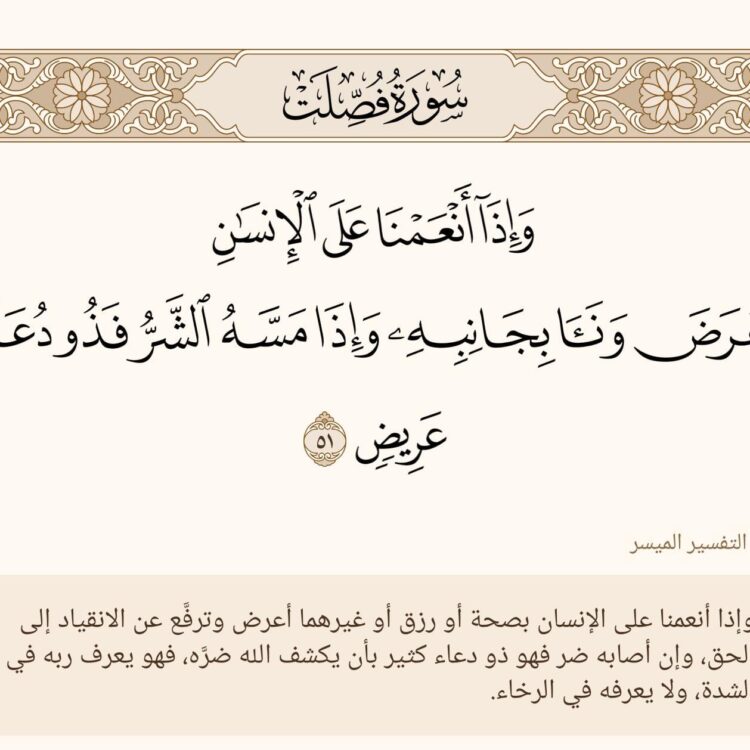 سُورَةُ فُصِّلَتْ
وَإِذَآ أَنْعَمْنَا عَلَى ٱلْإِنسَٰنِ
وَنَـَٔا بِجَانِبِهِۦ وَإِذَا مَسَّهُ ٱلشَّرُّ فَذُو
عَرِيضٍ ٥١
التفسير الميسر
وإذا أنعمنا على الإنسان بصحة أو رزق أو غيرهما أعرض وترفَّع عن الانقياد إلى
لحق، وإن أصابه ضر فهو ذو دعاء كثير بأن يكشف الله ضرَّه، فهو يعرف ربه في
لشدة، ولا يعرفه في الرخاء.